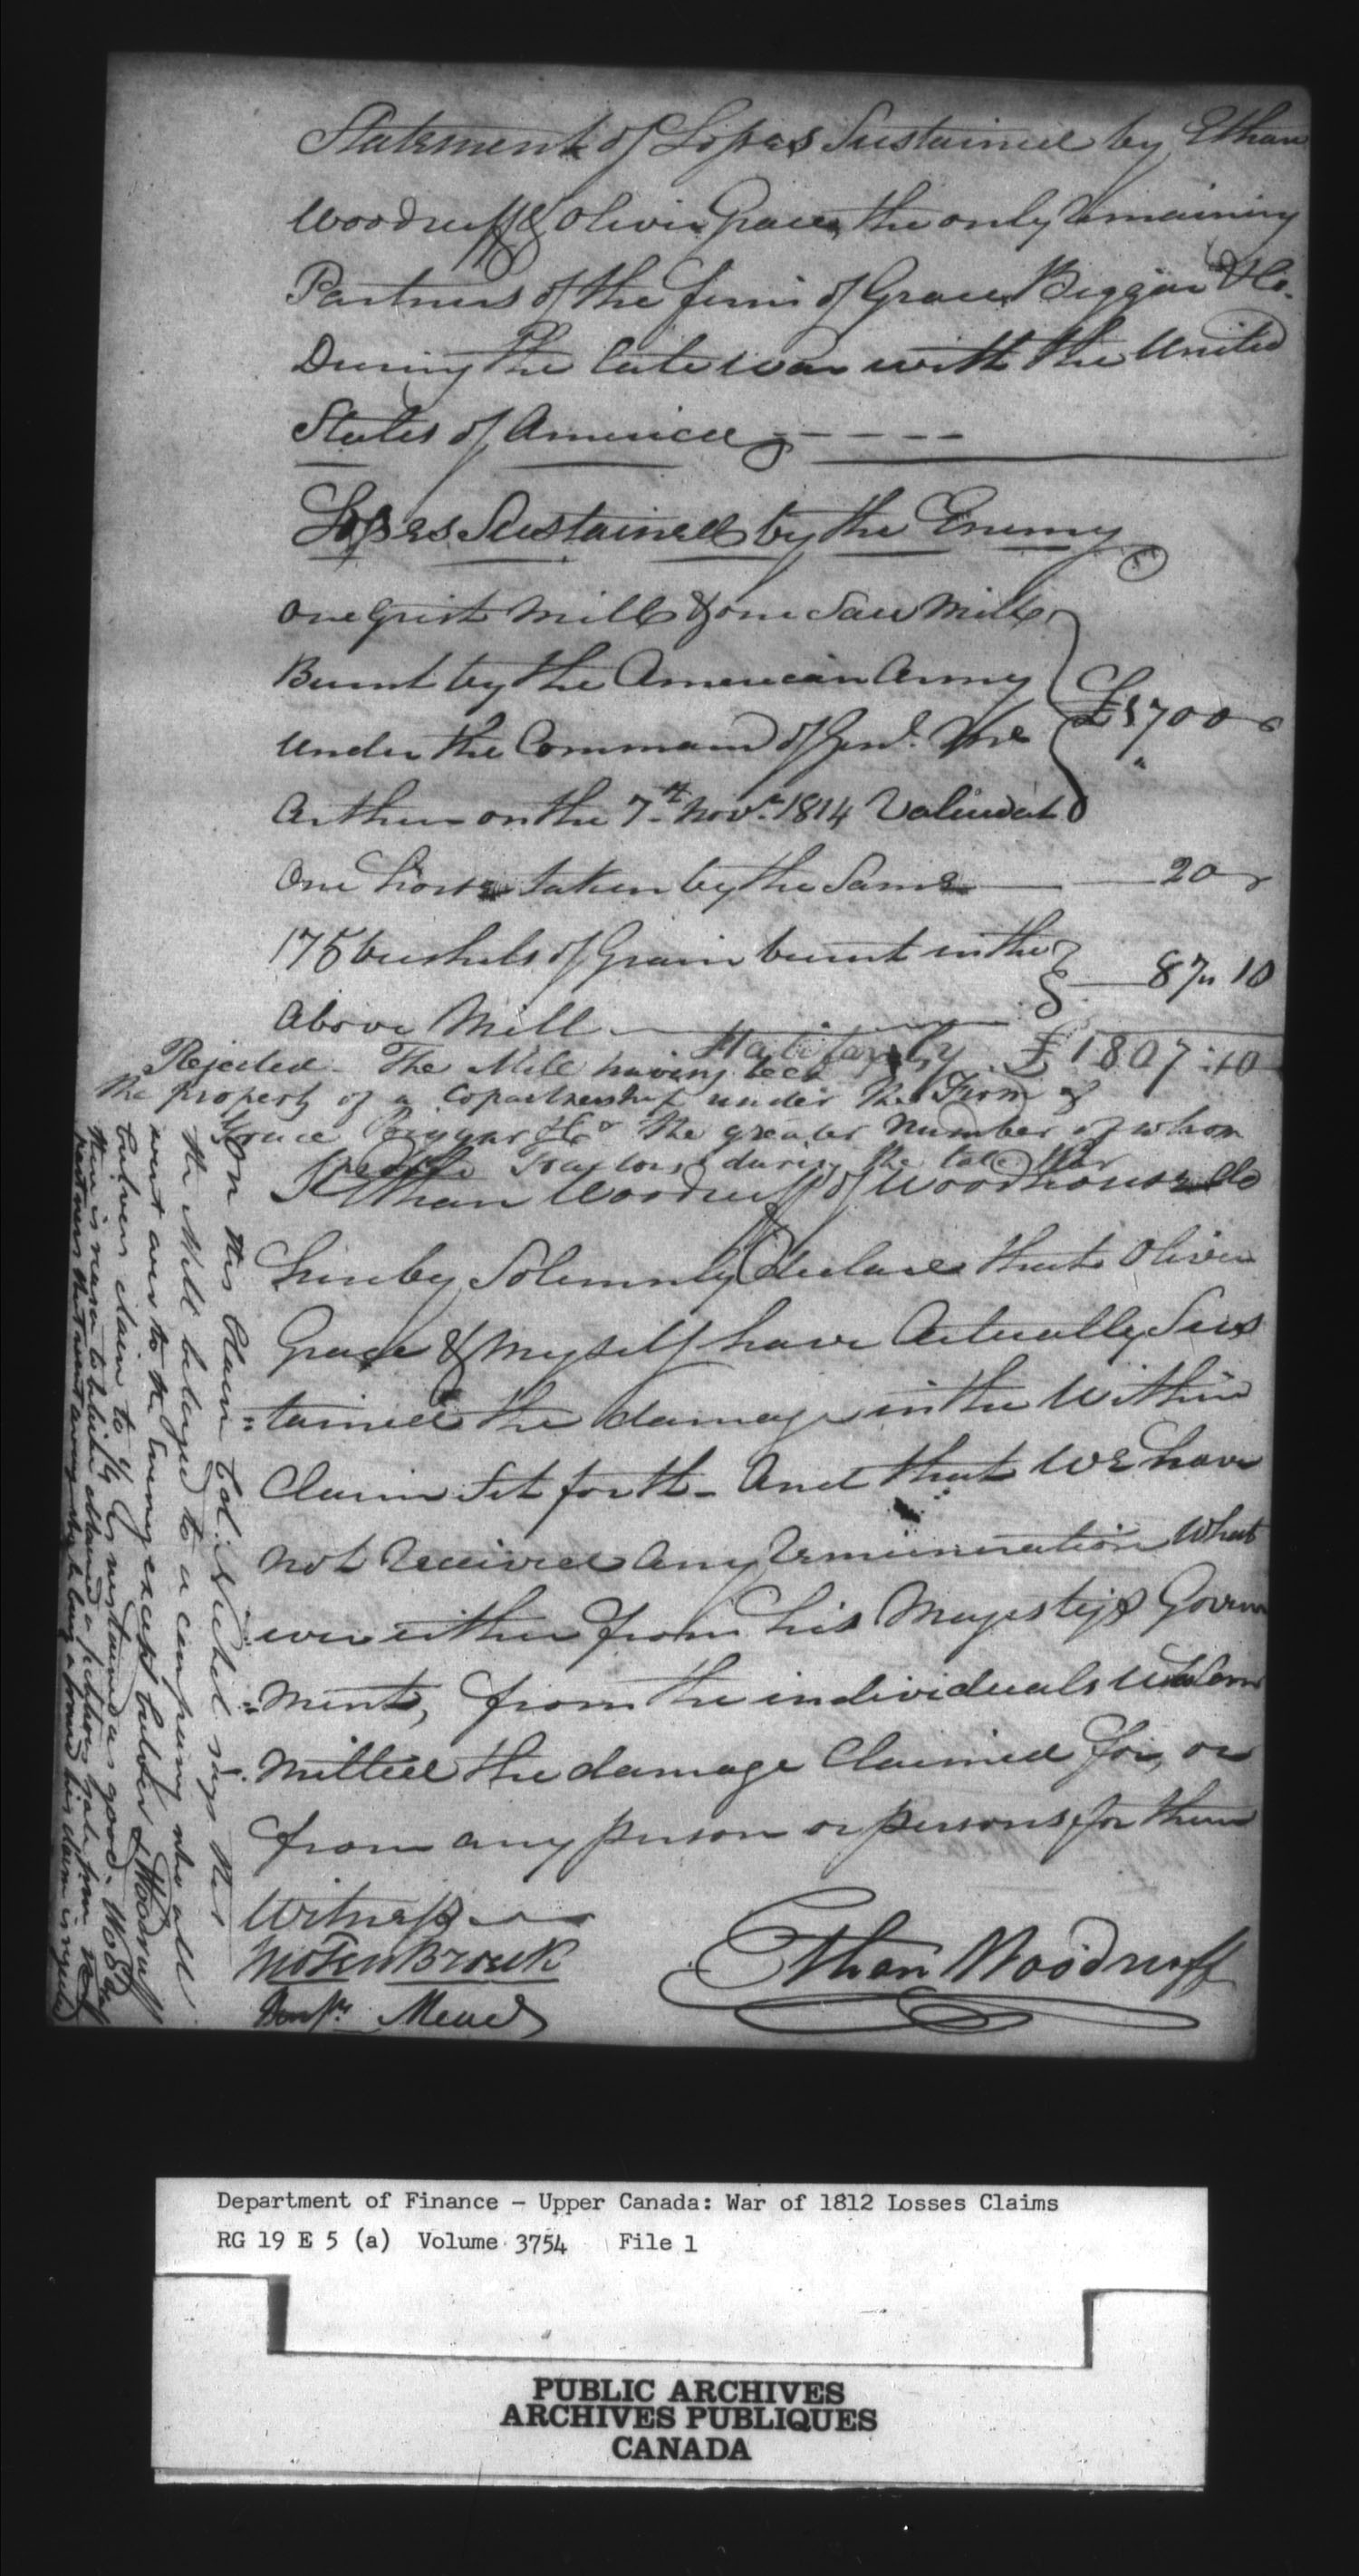 Statement of Losses Sustained by Ethan
Woodruff & Oliver Grace, the only remaining
Partners of the firm of Grace Biggar & Co.
During the late war with the United
States of America
Losses Sustained by the Enemy
One Grist Mill & one Saw Mill
Burnt by the American Army
under the Command of Genl. Mc
Arthur on the 7th Novr. 1814 Valued at
£1700
One horse taken by the Same 20
175 bushels of Grain burnt in the
Above Mill
87 " 10
Halifax Cy £1807 : 10
Rejected - The Mill having been
the property of a Copartnership under the Firm of
Grace Biggar & Co the greater number of whom
Traitors during the late War
I Ethan Woodruff of Woodhouse do
hereby Solemnly declare that Oliver
Grace & Myself have Actually Sus
=tained the damage in the Within
Claim Set forth - And that we have
not received any remuneration What
=ever either from his Majestys Govern
=ment, from the individuals who Com
=mitted the damage Claimed for, or
from any person or persons for them
Witness
Ethan Woodruff
Mead
On this Claim Col: Nichol says that
the Mill belonged to a company who all
went over to the Enemy except Culver & Woodruff
Culvers claim to ¼ is sustained as good -
there is reason to believe obtained a fictitious sale from the
partners that went away his claim is rejected
Department of Finance - Upper Canada: War of 1812 Losses Claims
RG 19 E 5 (a) Volume 3754 File 1
PUBLIC ARCHIVES
ARCHIVES PUBLIQUES
CANADA